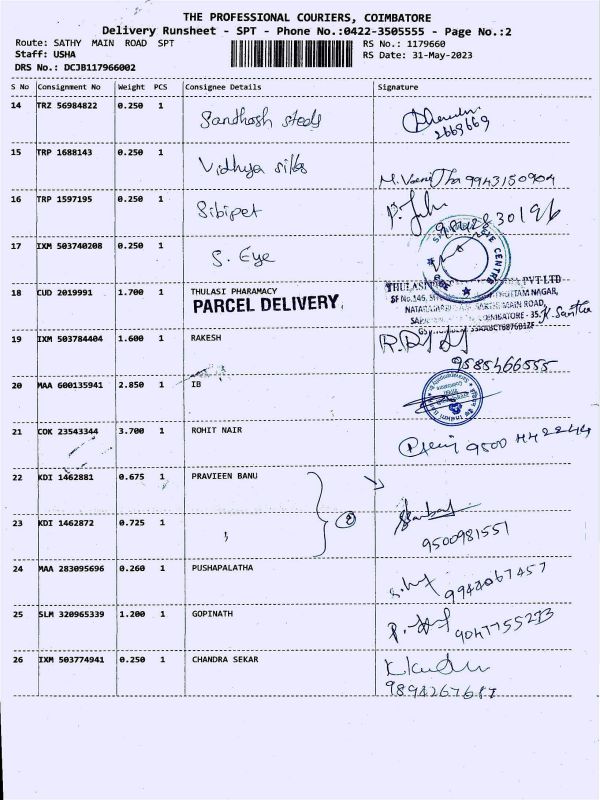 THE PROFESSIONAL COURIERS, COIMBATORE
Delivery Runsheet - SPT - Phone No.:0422-3505555 - Page No.:2
Route: SATHY MAIN ROAD SPT
RS No.: 1179660
Staff: USHA
RS Date: 31-May-2023
DRS No.: DCJB117966002
S No Consignment No Weight PCS Consignee Details Signature
14 TRZ 56984822 0.250 1 Sandhosh steels
2669669
15 TRP 1688143 0.250 1 Vidhya silks
9943150904
16 TRP 1597195 0.250 1 Sibipet
17 IXM 503740208 0.250 1 S. Eye
18 CUD 2019991 1.700 1 THULASI PHARAMACY
PARCEL DELIVERY
PVT-LTD
NAGAR,
MAIN ROAD,
19 IXM 503784404 1.600 1 RAKESH
9585466555
20 MAA 600135941 2.850 1 IB
21 COK 23543344 3.700 1 ROHIT NAIR
9500442244
22 KDI 1462881 0.675 1 PRAVIEEN BANU
2
23 KDI 1462872 0.725 1
9500981551
24 MAA 283095696 0.260 1 PUSHAPALATHA
9944067457
25 SLM 320965339 1.200 1 GOPINATH
26 IXM 503774941 0.250 1 CHANDRA SEKAR